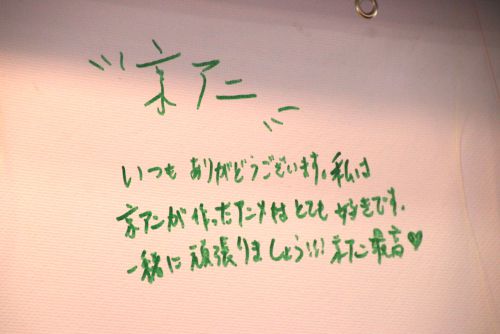 京アニ
いつもありがどうございます。私は
京アニが作ったアニメはとても好きです.
一緒に頑張りましょう!!! 京アニ最高♥